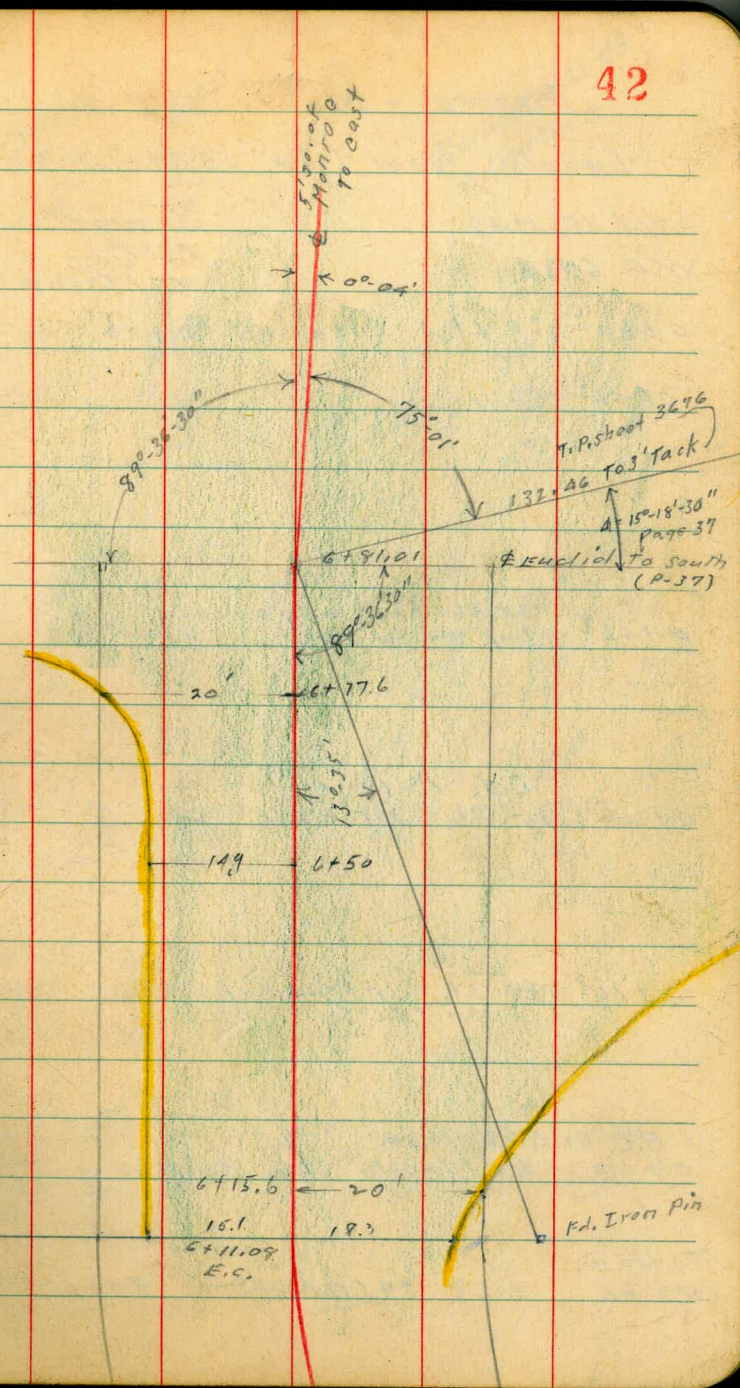 42
5'So. of
℄ Monroe
To East
0°-04'
89°-36'-30"
75°-01'
T.P. sheet 3676
132.46 To 3' Tack
Δ=15°-18'-30"
Page 37
6+81.01
℄ Euclid To South
(P-37)
89°-36'30"
20'
6+77.6
13°-35'
14.9
6+50
6+15.6
20'
18.3
Fd. Iron Pin
6+11.08
E.C.